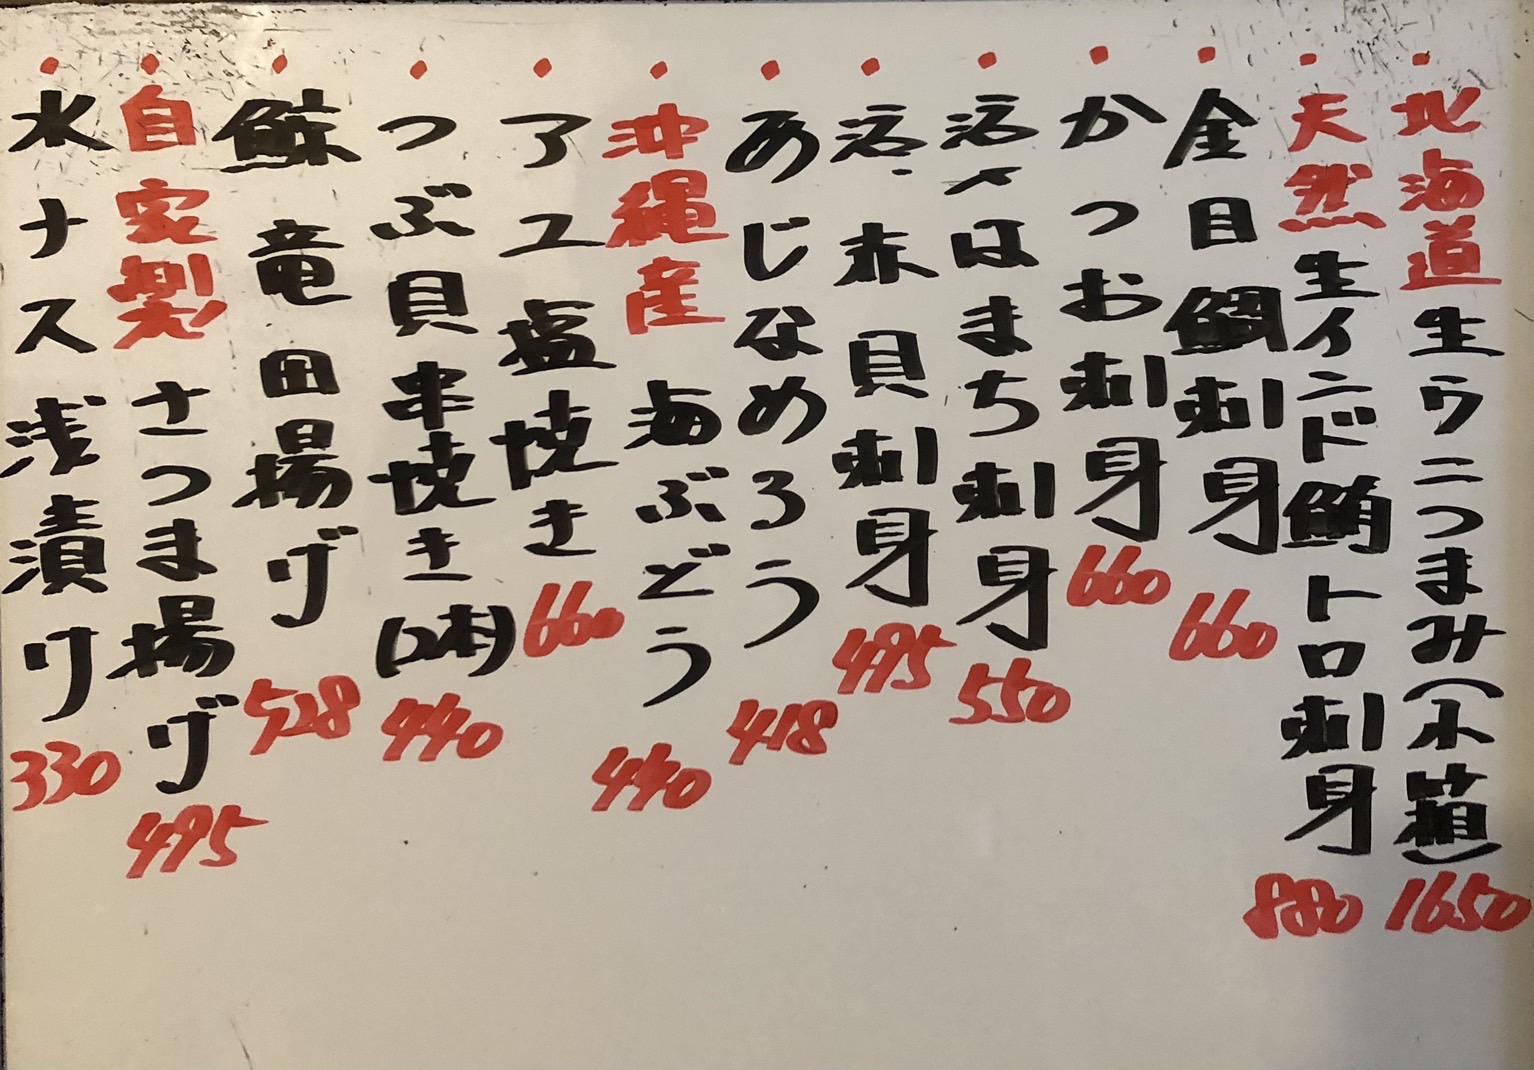 北海道生ウニつまみ(小箱)1650
天然生インド鮪トロ刺身880
金目鯛刺身660
かつお刺身660
活〆はまち刺身550
活赤貝刺身495
あじなめろう418
沖縄産海ぶどう440
アユ塩焼き660
つぶ貝串焼き(2本)440
鯨竜田揚げ528
自家製さつま揚げ495
水ナス浅漬け330